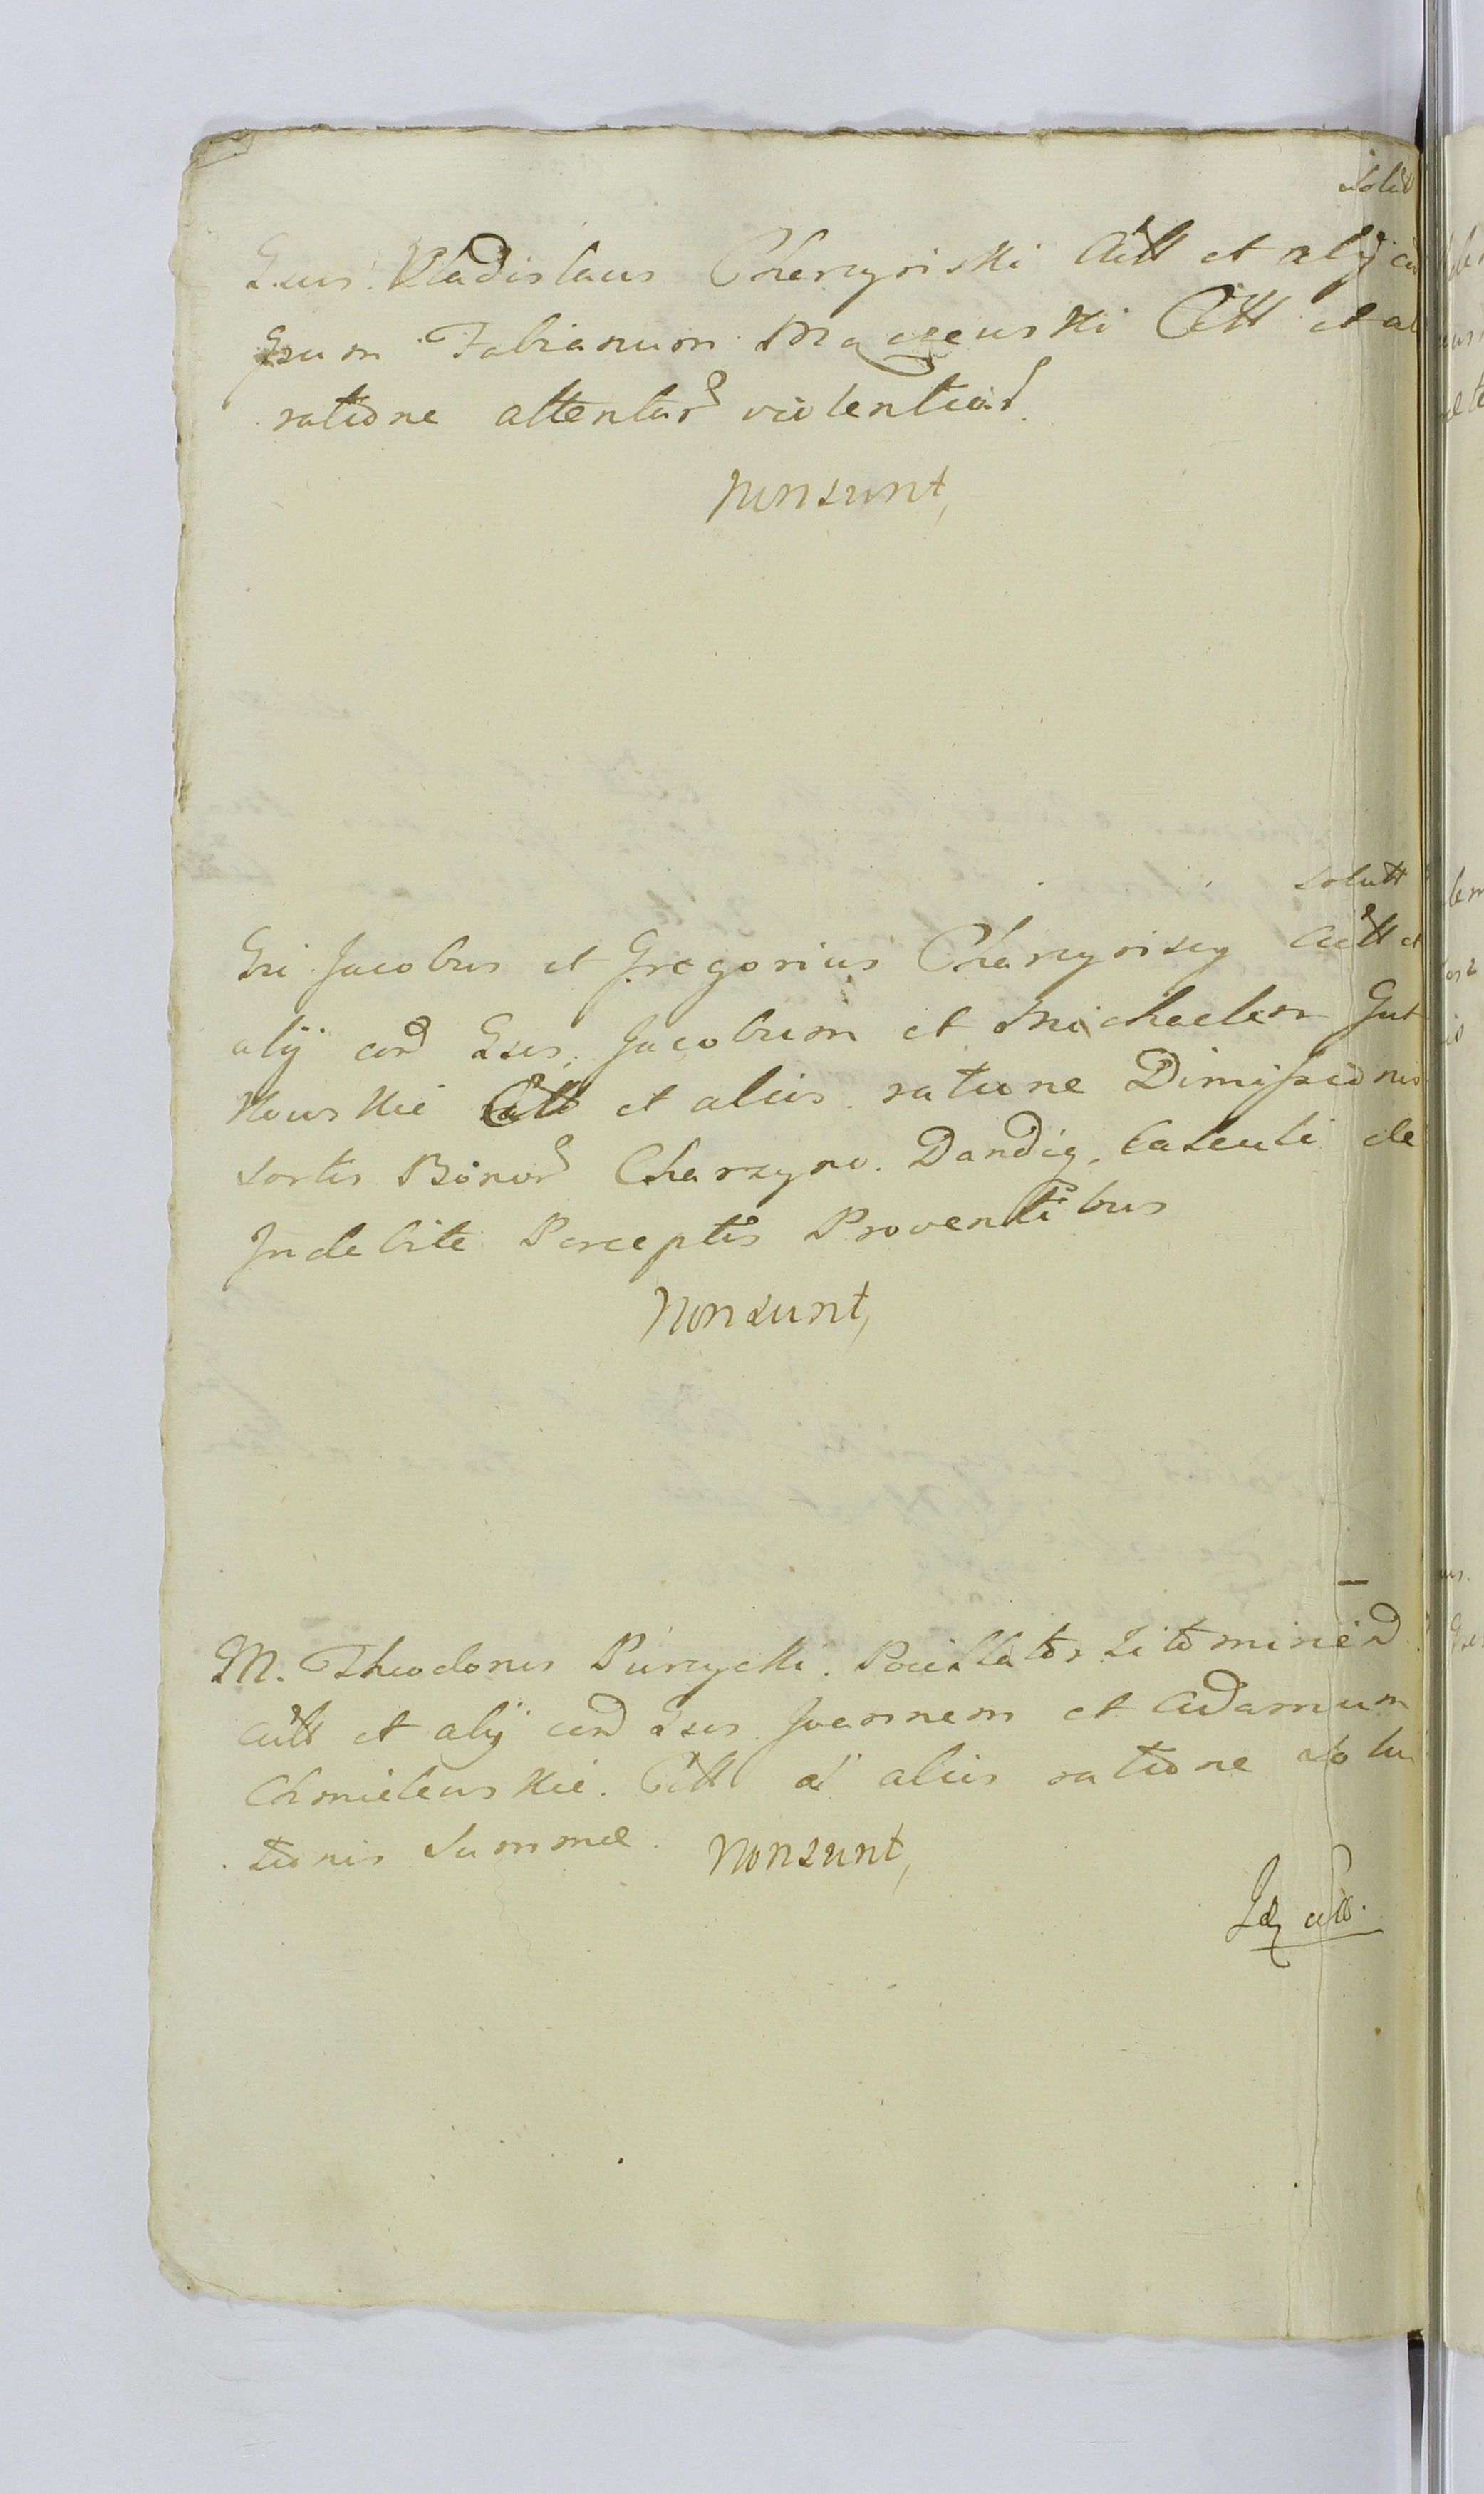 Gsus Vladislaus Charzyński Actt et alij
Gsum Fabianum Mączewski Citt et al
ratione attentar violentiar
Nonsunt,
solutt
Gsi Jacobus et Gregorius Charzyńscy Actt et
alij con Gsos Jacobum et Michaelem Gut
kowskie Citt et alios ratione Dimissionis
sortis Bonor Charzyno. Dandiq Calculi de
Indebite Perceptis Proventibus
Nonsunt,
M. Theodorus Purzycki. Pocillator Zitomirien
Actt et alij con Gsos Joannem et Adamum
Chmielewskie. Citt et alios ratione Solu
tionis Summæ. Nonsunt,